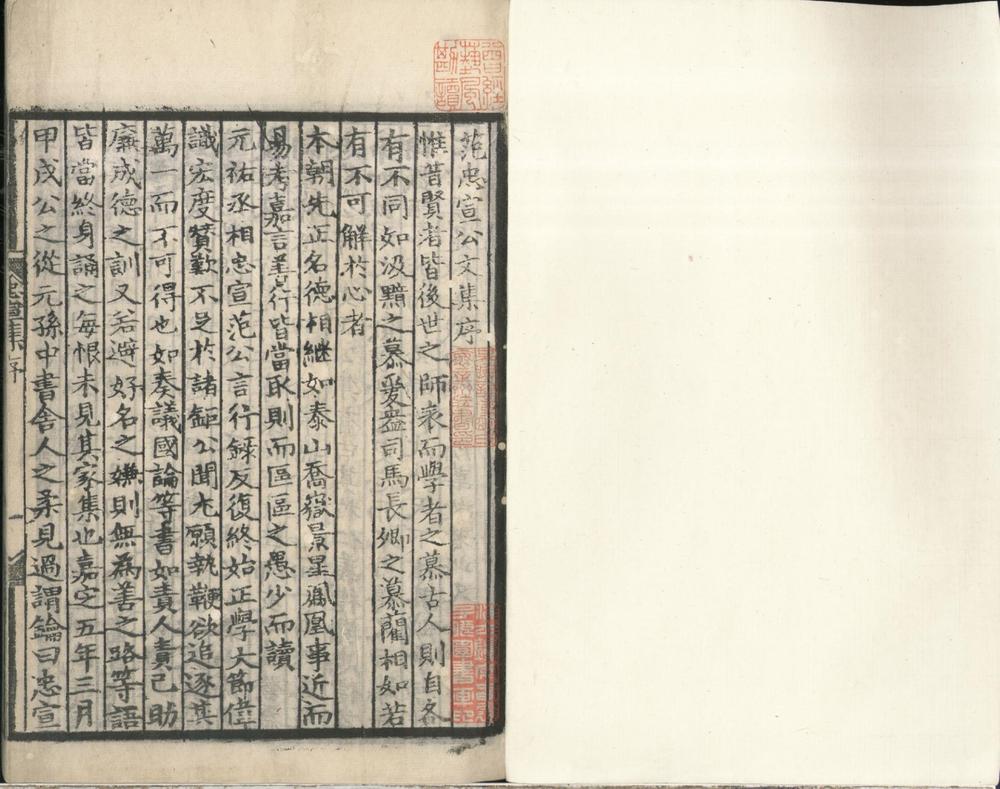 范忠宣公文集序
惟昔賢者皆後世之師表而學者之慕古人則自各
有不同如汲黯之慕爰盎司馬長卿之慕藺相如若
有不可解於心者
本朝先正名德相繼如泰山喬嶽景星鳳凰事近而
易考嘉言善行皆當取則而區區之愚少而讀
元祐丞相忠宣范公言行錄反復終始正學大節偉
識宏度贊歎不足於諸鉅公間尤願執鞭欲追逐其
萬一而不可得也如奏議國論等書如責人責己助
廉成德之訓又若避好名之嫌則無為善之路等語
皆當終身誦之每恨未見其家集也嘉定五年三月
甲戌公之從元孫中書舍人之柔見過謂鑰曰忠宣
忠宣集序
一
曾經藝風勘讀